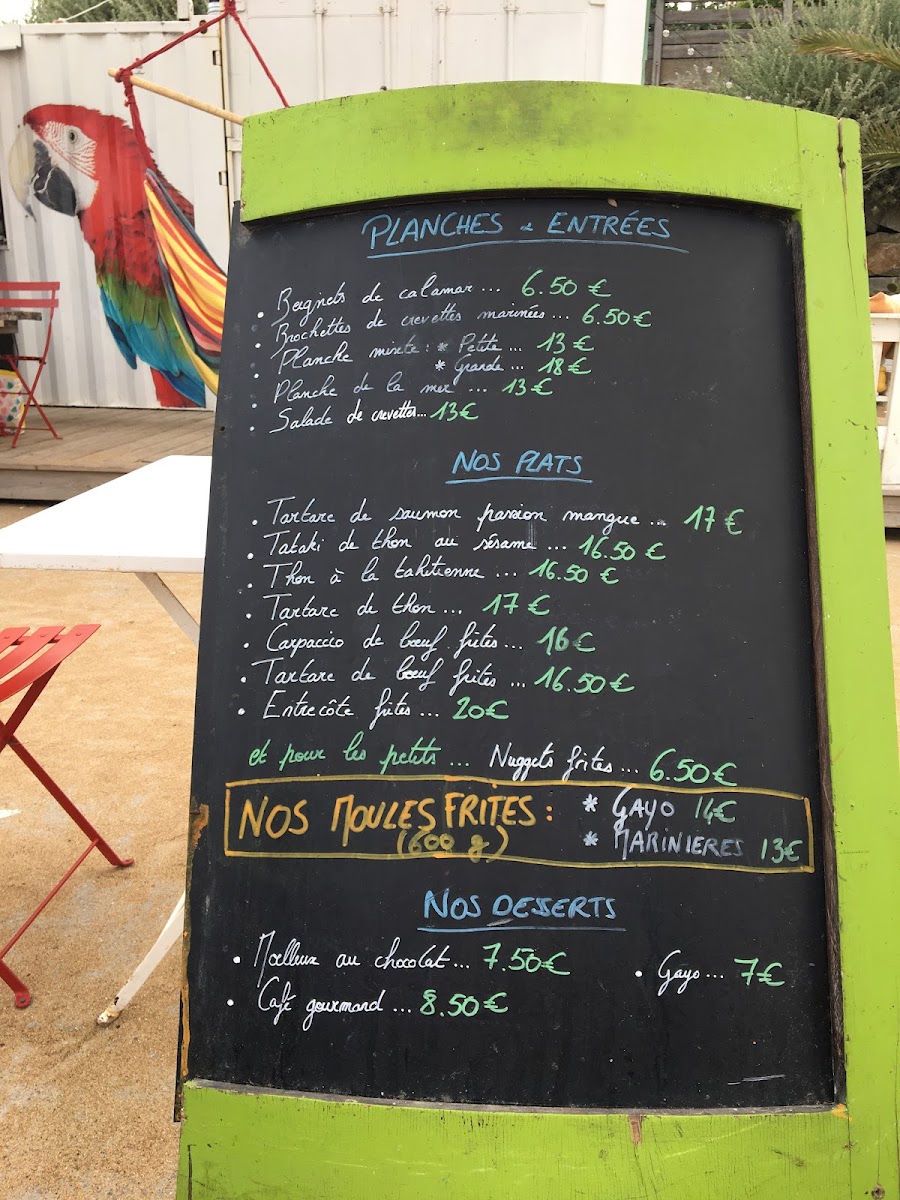 PLANCHES & ENTRÉES
• Beignets de calamar... 6.50 €
• Brochettes de crevettes marinées... 6.50€
• Planche mixte : * Petite ... 13 €
* Grande ... 18€
• Planche de la mer ... 13€
• Salade de crevettes... 13€
NOS PLATS
• Tartare de saumon passion mangue ... 17€
• Tataki de thon au sésame ... 16.50 €
• Thon à la tahitienne ... 16.50 €
• Tartare de thon ... 17 €
• Carpaccio de bœuf frites ... 16€
• Tartare de bœuf frites ... 16.50€
• Entrecôte frites ... 20€
et pour les petits ... Nuggets frites ... 6.50€
NOS MOULES FRITES : * GAYO 14€
(600 g) * MARINIERES 13€
NOS DESSERTS
• Moelleux au chocolat ... 7.50€ • Gayo ... 7€
• Café gourmand ... 8.50€